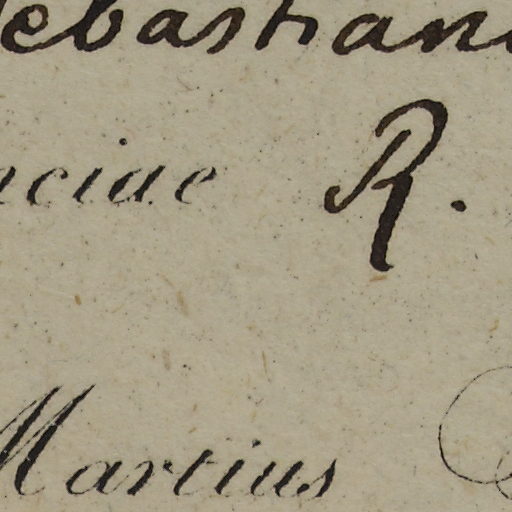 ebastian
nciae R.
Martius